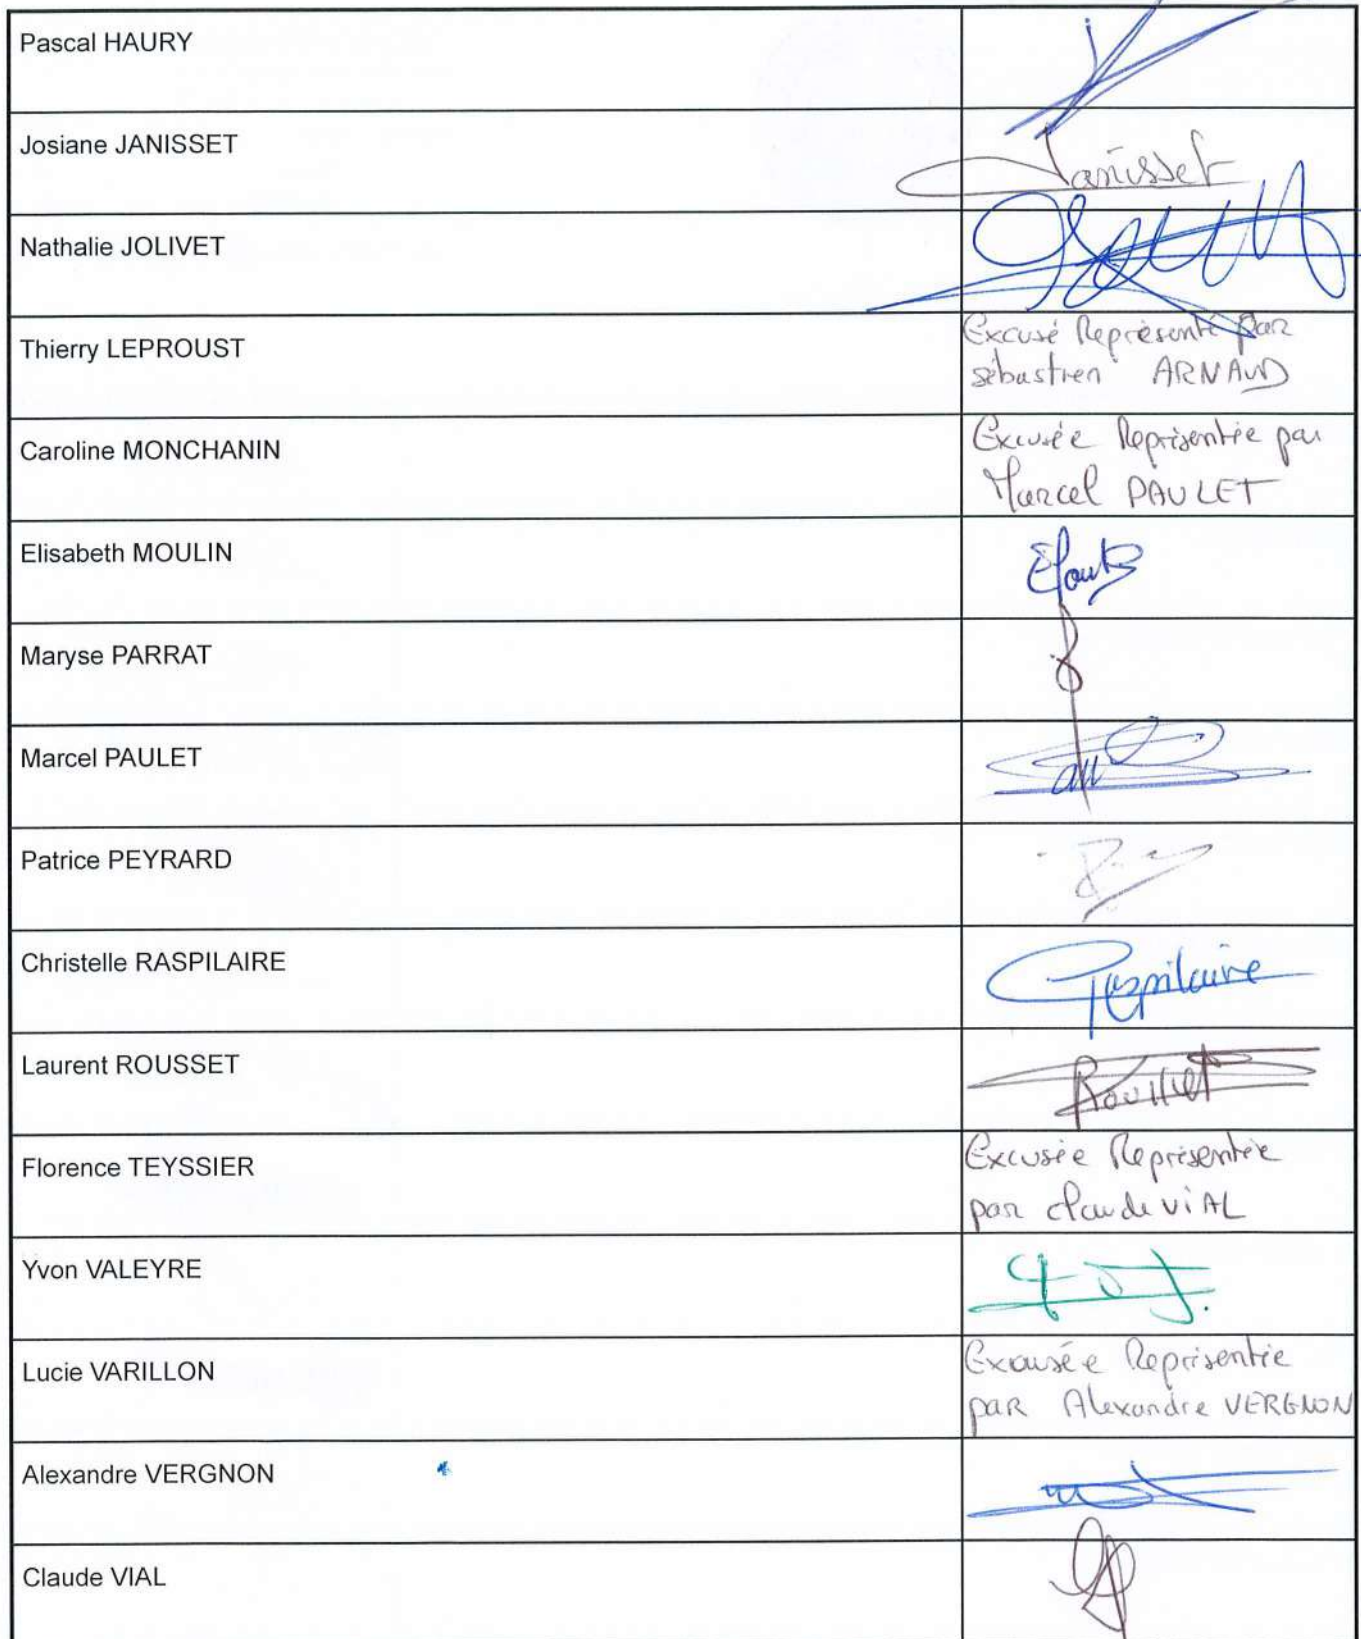 Pascal HAURY
Josiane JANISSET
Janisset
Nathalie JOLIVET
Thierry LEPROUST
Excusé Représenté par
sébastien ARNAUD
Caroline MONCHANIN
Excusée Représentée par
Marcel PAULET
Elisabeth MOULIN
Maryse PARRAT
Marcel PAULET
Patrice PEYRARD
Christelle RASPILAIRE
Raspilaire
Laurent ROUSSET
Rousset
Florence TEYSSIER
Excusée Représentée
par claude ViAL
Yvon VALEYRE
Lucie VARILLON
Excusée Représentée
par Alexandre VERGNON
Alexandre VERGNON
Claude VIAL